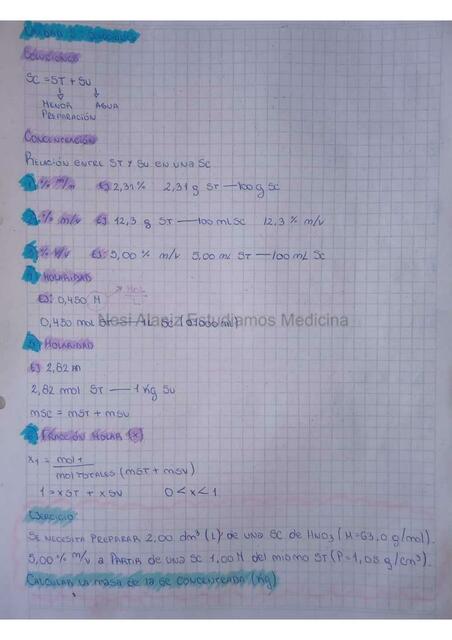 Unidad 5: Soluciones
Soluciones
SC = ST + SU
Menor Agua
Preparación
Concentración
Relación entre ST y SU en una SC
1) % m/m Ej: 2,31 % 2,31 g ST — 100 g SC
2) % m/v Ej: 12,3 g ST — 100 mL SC 12,3 % m/v
3) % V/V Ej: 5,00 % m/v 5,00 mL ST — 100 mL SC
4) Molaridad
Ej: 0,450 M
0,450 mol ST — 1L SC (ó 1000 ml)
Nesi Alaniz Estudiamos Medicina
5) Molaridad
Ej 2,82 m
2,82 mol ST — 1 Kg SU
mSC = mST + mSU
6) Fracción molar (x)
x1 = mol 1
mol totales (mST + mSU)
1 = xST + xSU 0 < x < 1
Ejercicio
Se necesita preparar 2,00 dm³ (L) de una SC de HNO3 (M=63,0 g/mol).
5,00 % m/v a partir de una SC 1,00 M del mismo ST (P=1,05 g/cm³).
Calcular la masa de la SC concentrada (Kg)